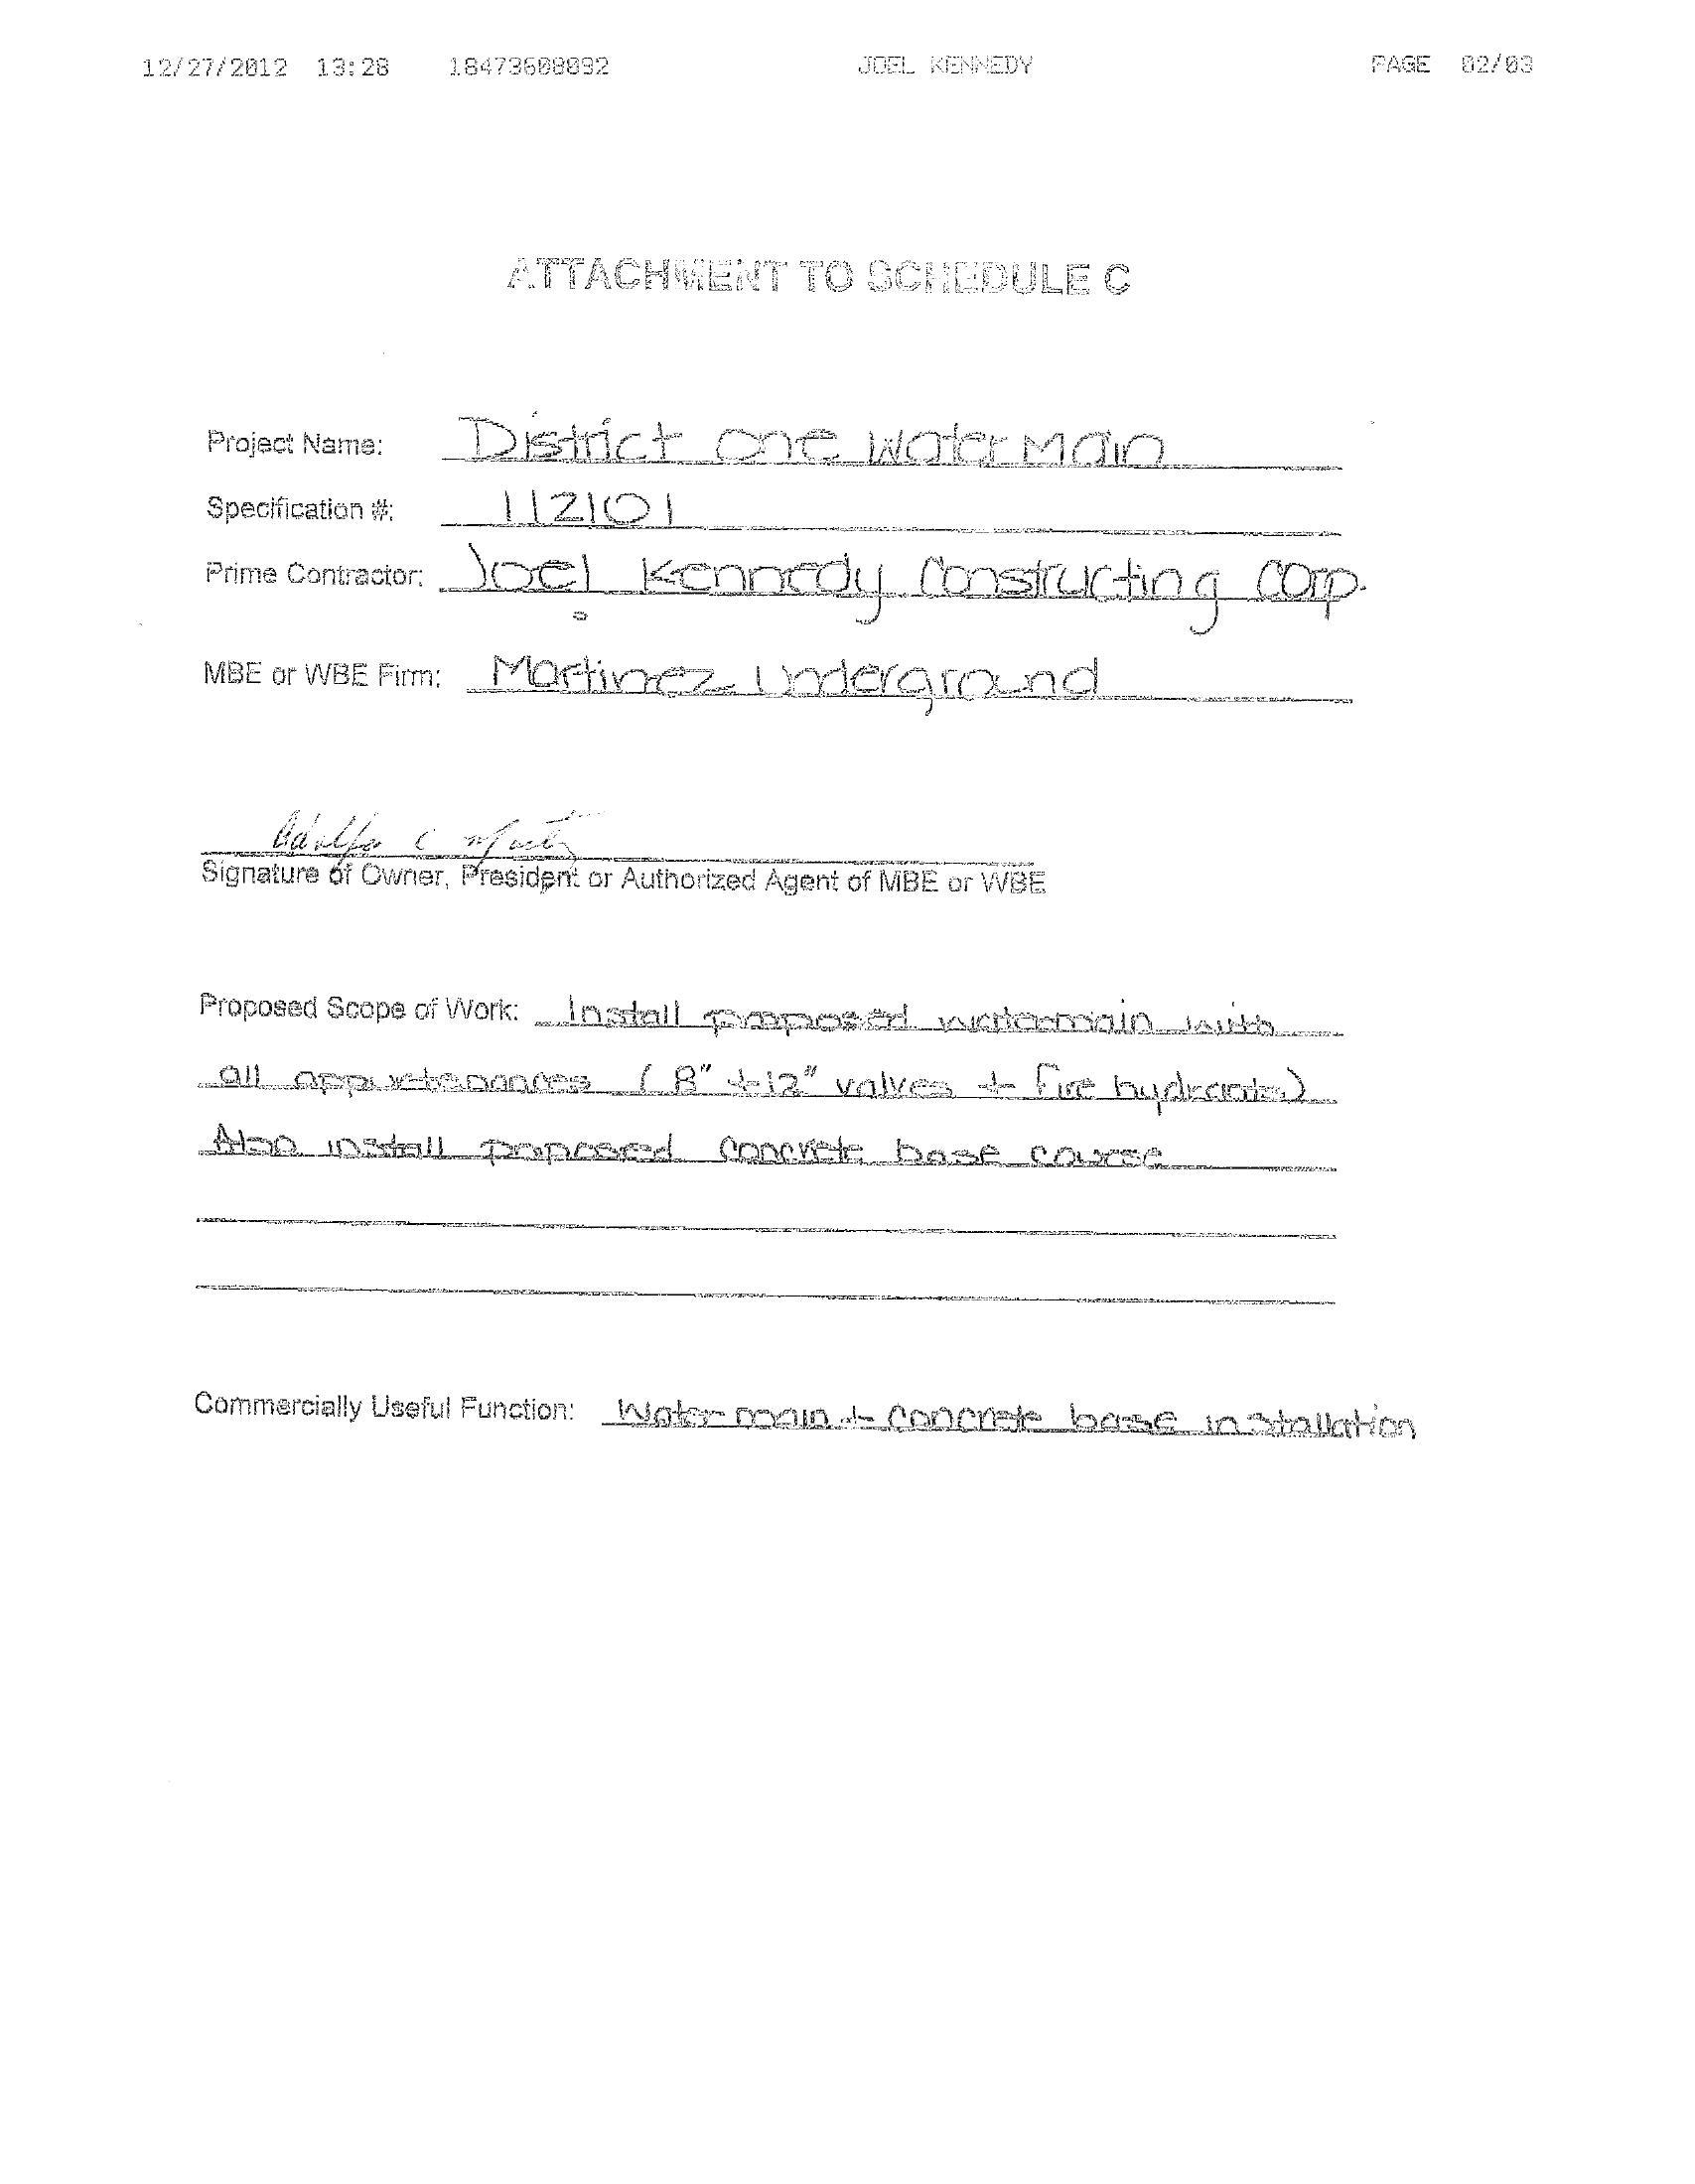 12/27/2012 13:28 18473608092 JOEL KENNEDY PAGE 02/03
ATTACHMENT TO SCHEDULE C
Project Name: District One Water Main
Specification #: 112101
Prime Contractor: Joel Kennedy Constructing Corp.
MBE or WBE Firm: Martinez Underground
Adolfo C
Signature of Owner, President or Authorized Agent of MBE or WBE
Proposed Scope of Work: Install proposed watermain with
all appurtenances (8" + 12" valves + fire hydrants)
Also install proposed concrete base course
Commercially Useful Function: Water main + concrete base installation